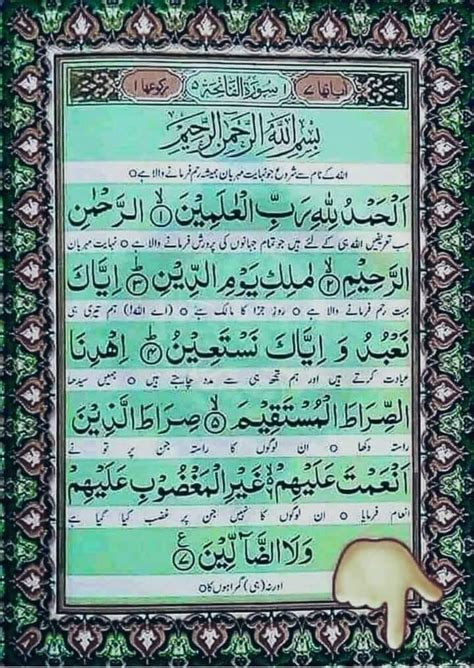 اٰیاتها ٧ سُوْرَةُ الْفَاتِحَة ٥ رکوعها ١
بِسْمِ اللّٰهِ الرَّحْمٰنِ الرَّحِيْمِ
اللہ کے نام سے شروع جو نہایت مہربان ہمیشہ رحم فرمانے والا ہے o
اَلْحَمْدُ لِلّٰهِ رَبِّ الْعٰلَمِيْنَ ۙ﴿١﴾ الرَّحْمٰنِ
سب تعریفیں اللہ ہی کے لئے ہیں جو تمام جہانوں کی پرورش فرمانے والا ہے o نہایت مہربان
الرَّحِيْمِ ۙ﴿٢﴾ مٰلِكِ يَوْمِ الدِّيْنِ ؕ﴿٣﴾ اِيَّاكَ
بہت رحم فرمانے والا ہے o روزِ جزا کا مالک ہے o (اے اللہ!) ہم تیری ہی
نَعْبُدُ وَ اِيَّاكَ نَسْتَعِيْنُ ؕ﴿٤﴾ اِهْدِنَا
عبادت کرتے ہیں اور ہم تجھ ہی سے مدد چاہتے ہیں o ہمیں سیدھا
الصِّرَاطَ الْمُسْتَقِيْمَ ۙ﴿٥﴾ صِرَاطَ الَّذِيْنَ
راستہ دکھا o ان لوگوں کا راستہ جن پر تو نے
اَنْعَمْتَ عَلَيْهِمْ ۙ۬ غَيْرِ الْمَغْضُوْبِ عَلَيْهِمْ
انعام فرمایا o ان لوگوں کا نہیں جن پر غضب کیا گیا ہے
وَلَا الضَّآلِّيْنَ ﴿٧﴾ ع
اور نہ (ہی) گمراہوں کا o